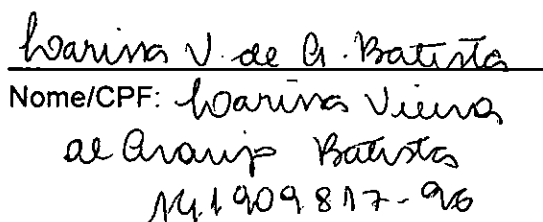 Larissa V. de A. Batista
Nome/CPF: Larissa Vieira
de Araujo Batista
141909817-96